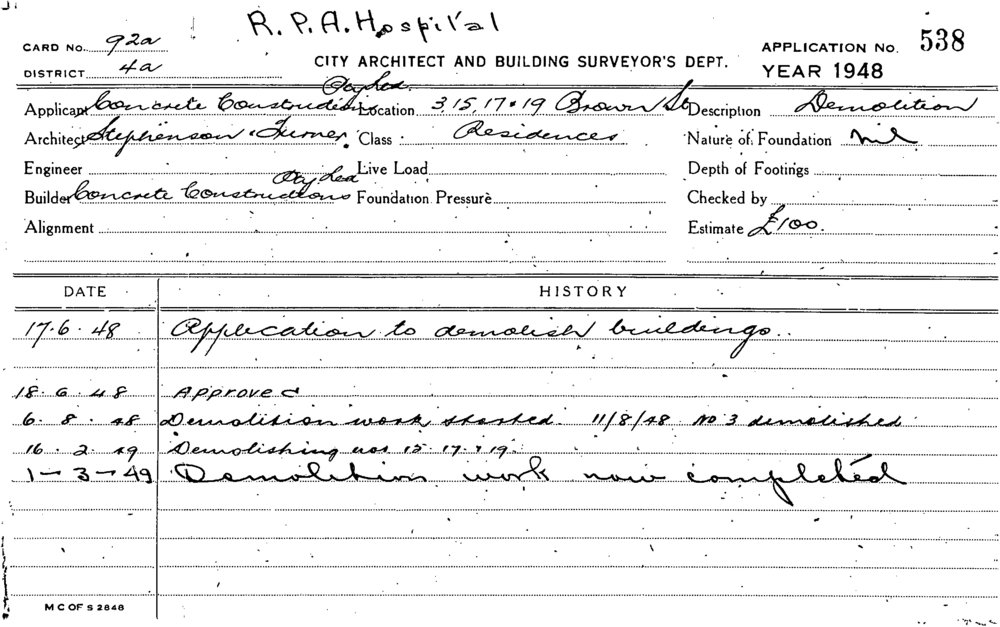 R.P.A. Hospital
CARD No. 92a
DISTRICT 4a
CITY ARCHITECT AND BUILDING SURVEYOR'S DEPT.
APPLICATION No. 538
YEAR 1948
Applicant Concrete Constructions Pty Ltd. Location 3, 15, 17 & 19 Brown St Description Demolition
Architect Stephenson & Turner. Class Residences Nature of Foundation Nil
Engineer Live Load Depth of Footings
Builder Concrete Constructions Pty Ltd Foundation Pressure Checked by
Alignment Estimate £100.
DATE HISTORY
17.6.48 Application to demolish buildings.
18.6.48 Approved
6.8.48 Demolition work started. 11/8/48 No 3 demolished
16.2.49 Demolishing nos 15. 17. & 19.
1-3-49 Demolition work now completed
M C OF S 2848